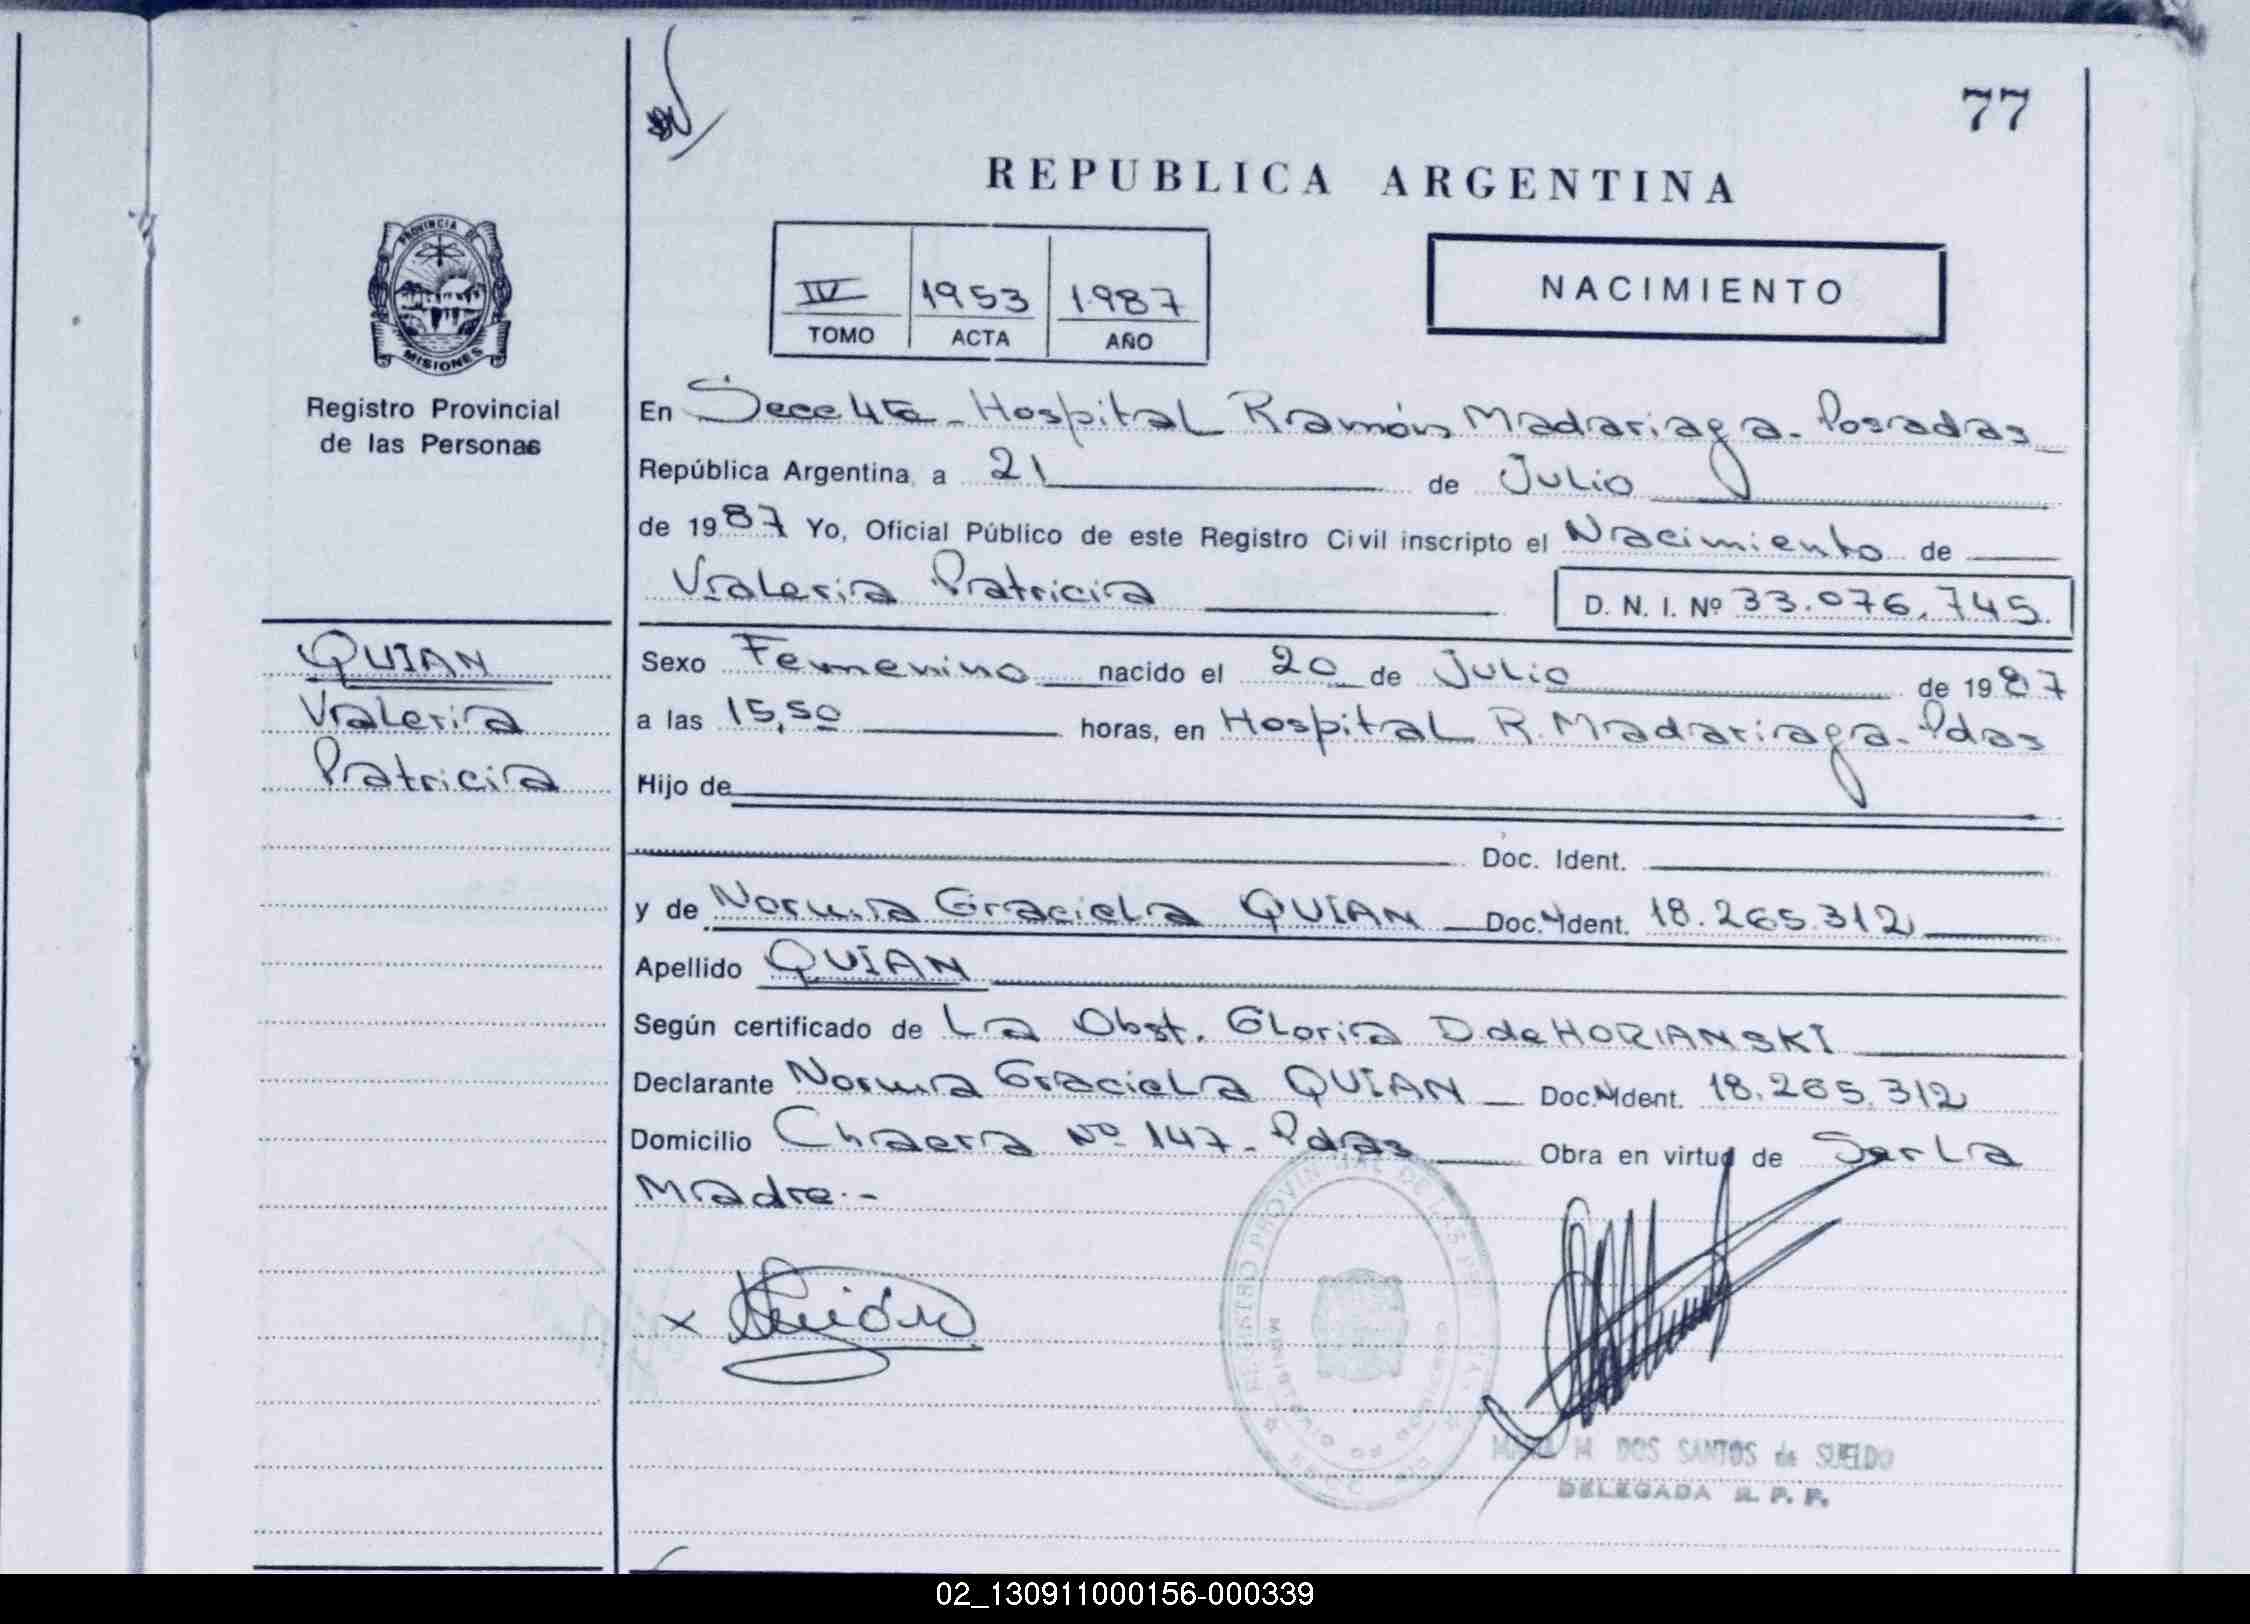 77
REPUBLICA ARGENTINA
PROVINCIA DE
MISIONES
Registro Provincial
de las Personas
IV 1953 1987
TOMO ACTA AÑO
NACIMIENTO
En Secc 4ta - Hospital Ramón Madariaga - Posadas
República Argentina, a 21 de Julio
de 1987 Yo, Oficial Público de este Registro Civil inscripto el Nacimiento de
Valeria Patricia D. N. I. Nº 33.076.745.
QUIAN
Valeria
Patricia
Sexo Femenino nacido el 20 de Julio de 1987
a las 15,50 horas, en Hospital R. Madariaga - Pdas
Hijo de
Doc. Ident.
y de Norma Graciela QUIAN Doc. Ident. 18.265.312
Apellido QUIAN
Según certificado de La Obst. Gloria D. de HORIANSKI
Declarante Norma Graciela QUIAN Doc. Ident. 18.265.312
Domicilio Chacra Nº 147 - Pdas Obra en virtud de Ser La
Madre.-
x
REGISTRO PROVINCIAL DE LAS PERSONAS
M. DOS SANTOS de SUELDO
DELEGADA R. P. P.
02_130911000156-000339